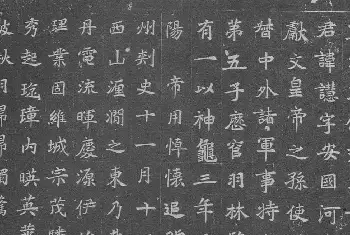 君諱譿字安國河
獻文皇帝之孫使
督中外諸軍事特
第五子歷官羽林
有一以神龜三年
陽帝用悼懷追
州刾史十一月十
西山湹澗之東乃
丹電流暉慶源伊
業固維城宗茂
秀起琁璋內暎英
秋月歸